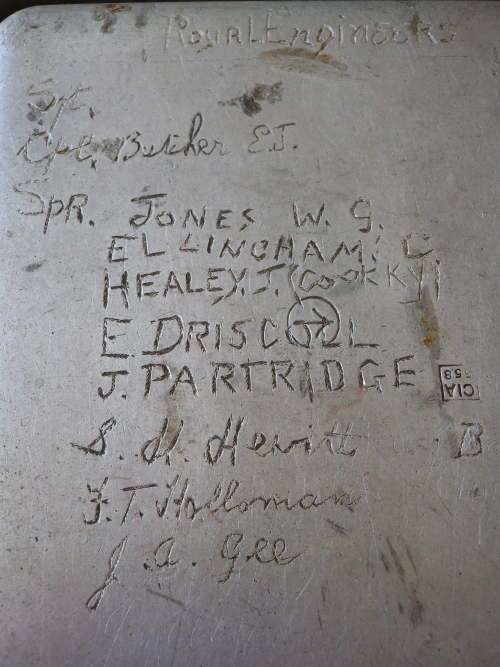 Royal Engineers
Sgt.
Cpl. Butcher E.J.
SpR. JONES W. G.
ELLINGHAM. C.
HEALEY. J. (COOKKY)
E. DRISCOLL
J. PARTRIDGE
CIA
58
S. H. Hewitt B
F. T. Holloman
J. A. Gee